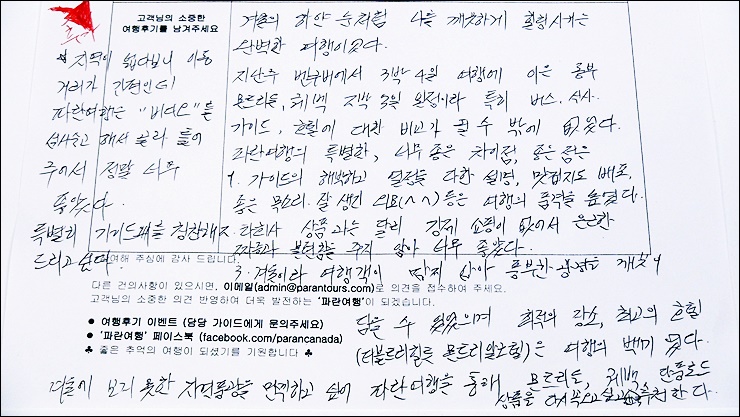 고객님의 소중한
여행후기를 남겨주세요
* 지역이 넓다보니 이동
거리가 긴편인데
파란여행은 "비디오"를
섭사숭고 해서 골라 틀어
주어서 정말 너무
좋았다.
특별히 가이드께 칭찬해
드리고 싶다.
겨울의 하얀 눈처럼 나를 깨끗하게 힐링시키는
완벽한 여행이었다.
지난주 밴쿠버에서 3박 4일 여행에 이은 동부
몬트리올, 퀘벡 2박 3일 일정이라 특히 버스, 식사.
가이드, 호텔에 대한 비교가 될 수 밖에 없었다.
파란여행의 특별한, 너무 좋은 차이점, 좋은 점은
1. 가이드의 해박하고 열정을 다한 설명, 맛집지도 배포,
좋은 목소리. 잘 생긴 외모(^^) 등은 여행의 품격을 높였다.
2. 타회사 상품과는 달리 강제 쇼핑이 없어서 은근한
짜증과 불편함을 주지 않아 너무 좋았다.
3. 겨울이라 여행객이 많지 않아 풍부한 광경도 깨끗이
담을 수 있었으며 최적의 장소, 최고의 호텔
(더블트리힐튼 몬트리올호텔)은 여행의 백미였다.
겨울에 보지 못한 자연풍광을 만끽하고 싶어 파란여행을 통해 몬트리올, 퀘벡 단풍로드
상품을 다시 찾고 싶고 추천한다.
여해 주심에 감사 드립니다.
다른 건의사항이 있으시면, 이메일(admin@parantours.com)로 의견을 접수하여 주세요.
고객님의 소중한 의견 반영하여 더욱 발전하는 '파란여행'이 되겠습니다.
● 여행후기 이벤트 (담당 가이드에게 문의주세요)
● '파란여행' 페이스북 (facebook.com/parancanada)
♣ 좋은 추억의 여행이 되셨기를 기원합니다 ♣